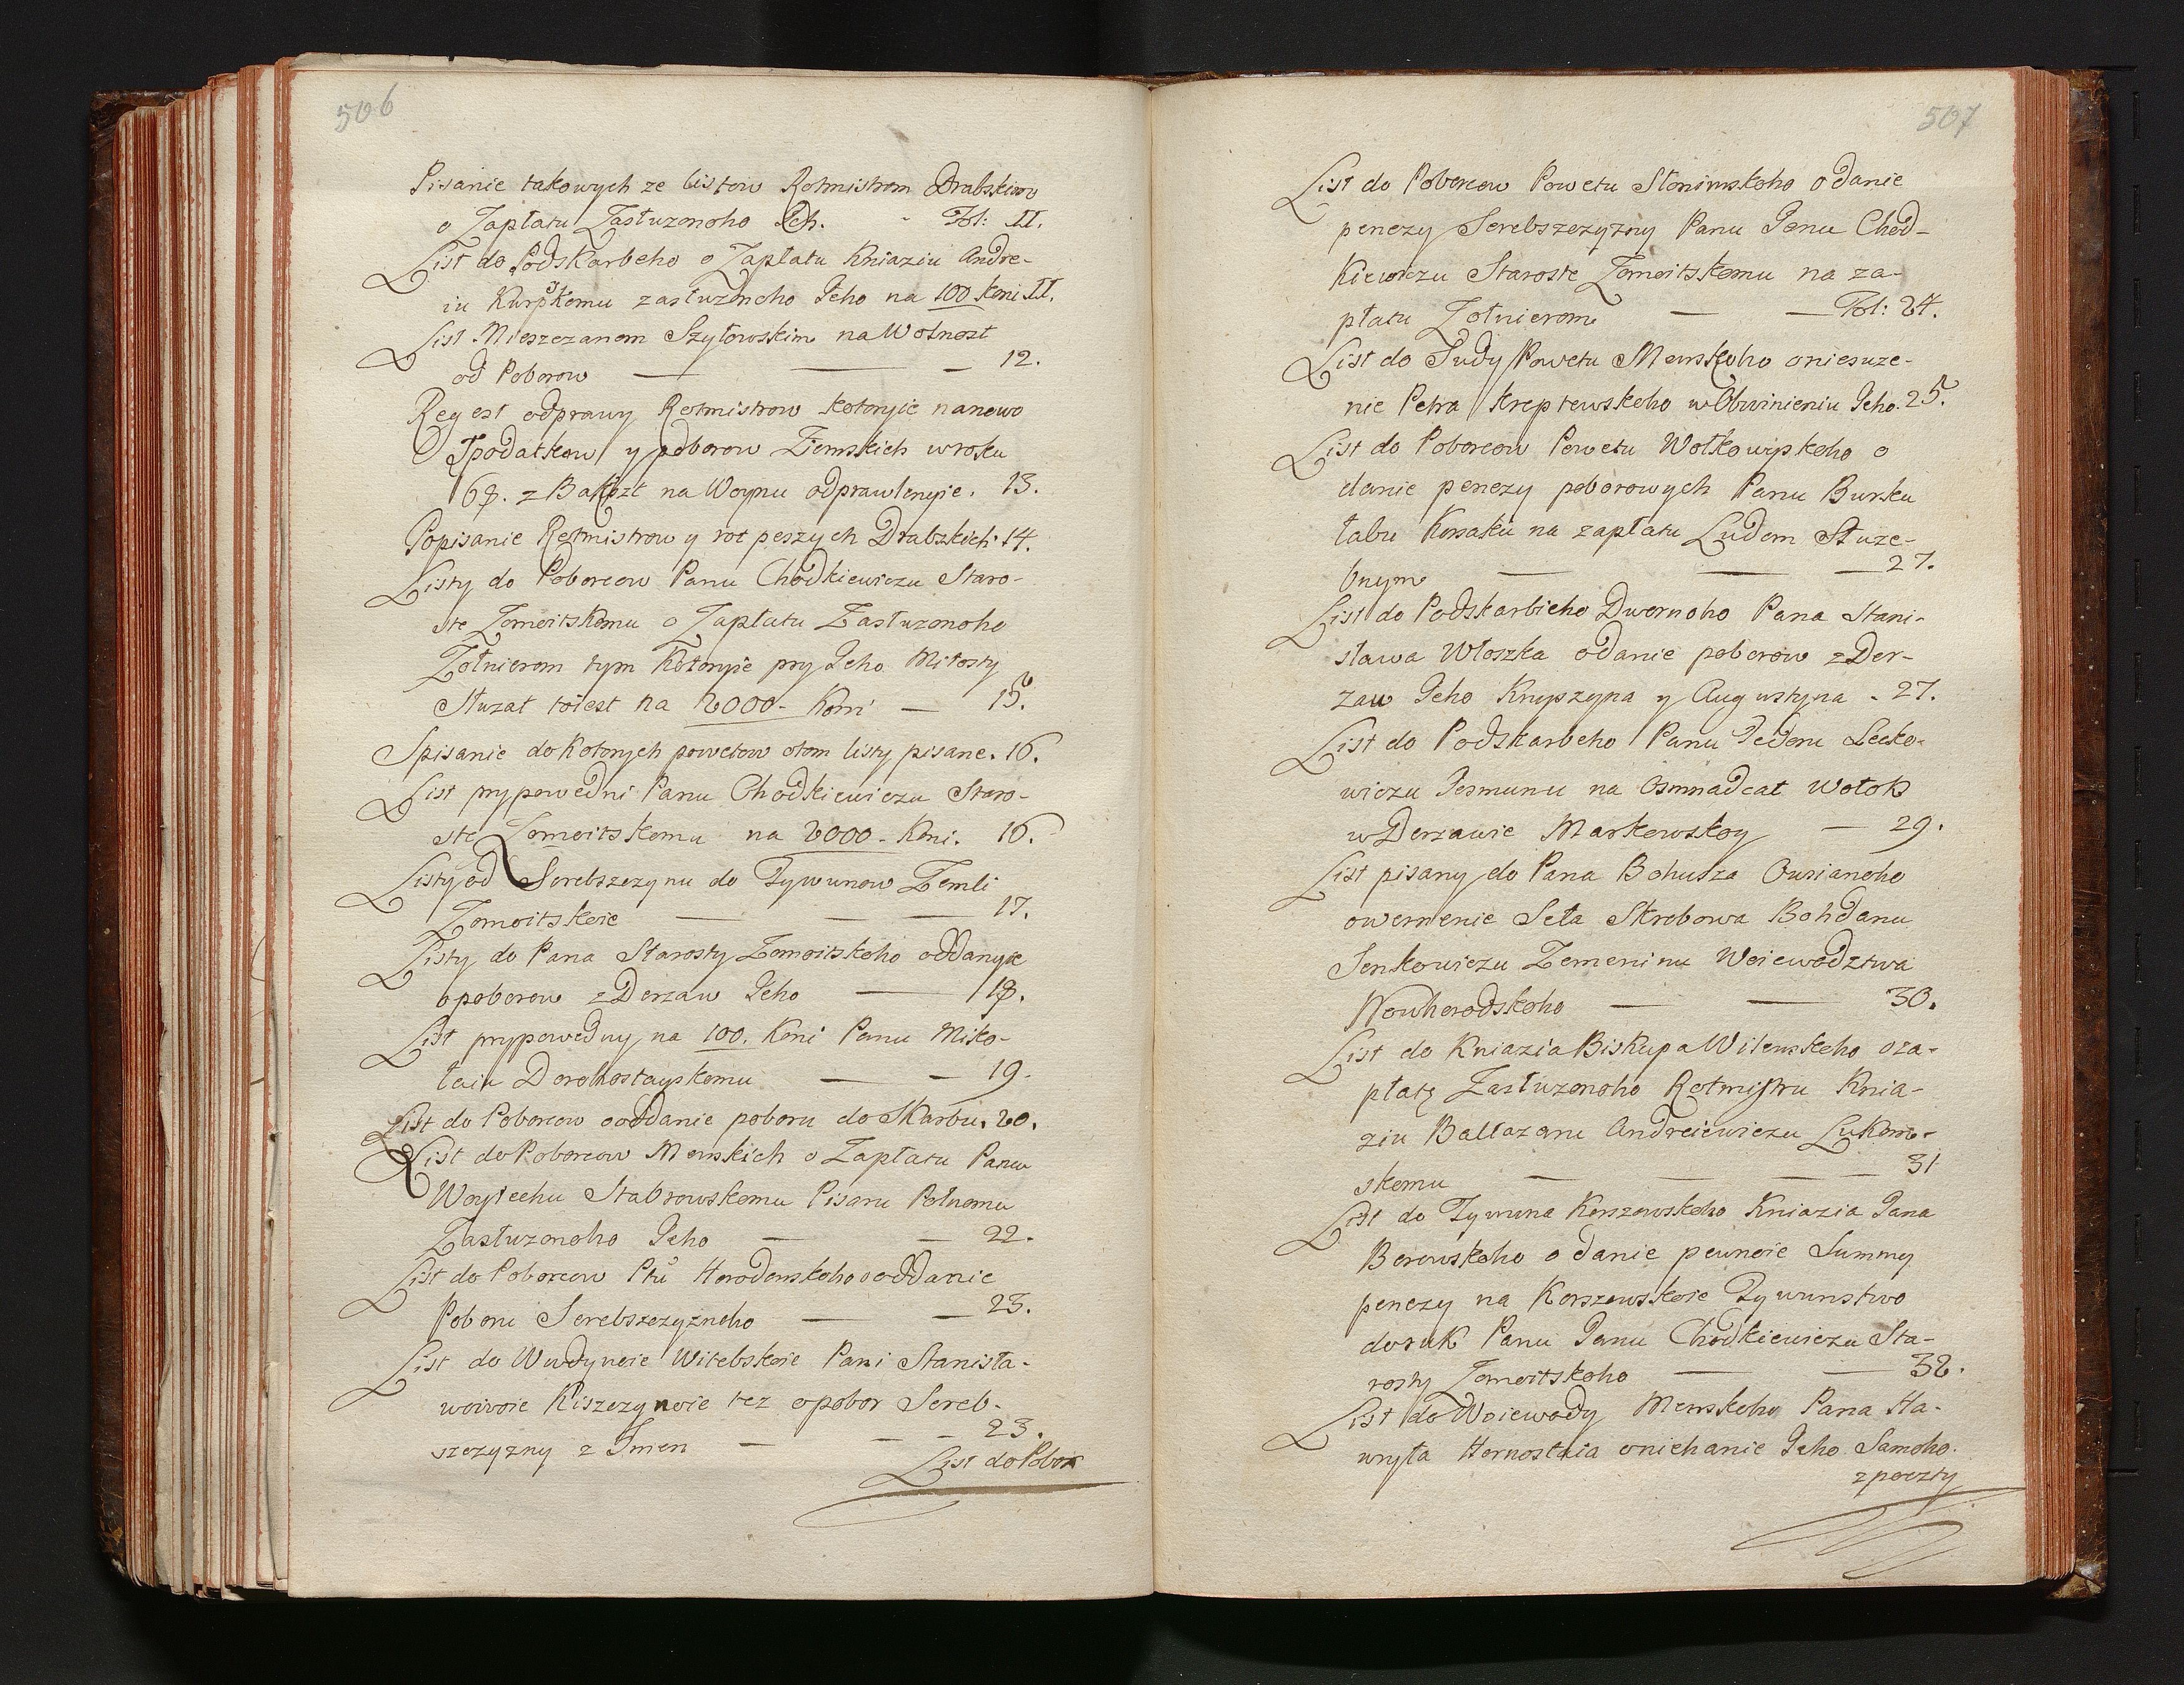 506
Pisanie takowych ze listow Rotmistrom Drabskim
o Zapłatu Zasłuzonoho Ich. - Fol: 11.
List do Podskarbeho o Zapłatu Kniaziu Andre-
iu Kurpskomu zasłuzonoho Jeho na 100 koni 11.
List Mieszczanom Szyłowskim na Wolnost
od Poborow — — — 12.
Regest odprawy Rotmistrow kotoryie nanowo
Spodatkow y poborow Ziemskich w roku
68. z Bakszt na Woynu odprawlenyie. 13.
Popisanie Rotmistrow y rot peszych Drabskich 14.
Listy do Poborcow Panu Chodkiewiczu Staro-
ste Zomoitskomu o Zapłatu Zasłuzonoho
Zołnierom tym Kotoryie pry Jeho Miłosty
Słuzat toiest na 2000 - Koni — 15.
Spisanie do Kotorych powetow otom listy pisane. 16.
List prypowedni Panu Chodkiewiczu Staro-
ste Zomoitskomu na 2000 - Koni. 16.
Listy od Serebszczyznu do Tywunow Zemli
Zomoitskoie — — — 17.
Listy do Pana Starosty Zomoitskoho oddanyie
opoborow z Derzaw Jeho — 18.
List prypowedny na 100. Koni Panu Miko-
łaiu Dorohostayskomu — — 19.
List do Poborcow ooddanie poboru do Skarbu. 20.
List do Poborcow Menskich o Zapłatu Panu
Woytechu Stabrowskomu Pisaru Polnomu
Zasłuzonoho Jeho — — 22.
List do Poborcow Ptu Horodenskoho ooddanie
Poboru Serebszczyznoho — — 23.
List do Wwdynoie Witebskoie Pani Stanisła-
wowoie Kiszczynoie tez opobor Sereb-
szczyzny z Imen — — — 23.
List do Pobor
507
List do Poborcow Powetu Słonimskoho odanie
penezy Serebszczyzny Panu Janu Chod-
kiewiczu Staroste Zomoitskomu na za-
płatu Zołnierom — — Fol: 24.
List do Sudy Powetu Menskoho oniesuze-
nie Petra Kreptewskoho w Obwinieniu Jeho. 25.
List do Poborcow Powetu Wołkowyskoho o
danie penezy poborowych Panu Burku
łabu Korsaku na zapłatu Ludem Słuze-
bnym — — — 27.
List do Podskarbieho Dwornoho Pana Stani-
sława Włoszka odanie poborow z Der-
zaw Jeho Knyszyna y Augustyna - 27.
List do Podskarbeho Panu Fedoru Lecko-
wiczu Jesmunu na Osmnadcat Wołok
w Derzawie Markowskoy — 29.
List pisany do Pana Bohusza Owsianoho
owernenie Seła Skrobowa Bohdanu
Senkowiczu Zemeninu Woiewodztwa
Nowhorodskoho — — 30.
List do Kniazia Biskupa Wilenskoho oza-
płatę Zasłuzonoho Rotmistru Knia-
ziu Baltazaru Andreiewiczu Lukom-
skomu — — — 31
List do Tywuna Korszewskoho Kniazia Jana
Borowskoho o danie pewnoie Summy
penezy na Korszewskoie Tywunstwo
do ruk Panu Janu Chodkiewiczu Sta-
rosty Zomoitskoho — — 32.
List do Woiewody Menskoho Pana Ha-
wryła Hornostaia oniehanie Jeho Samoho
z poczty